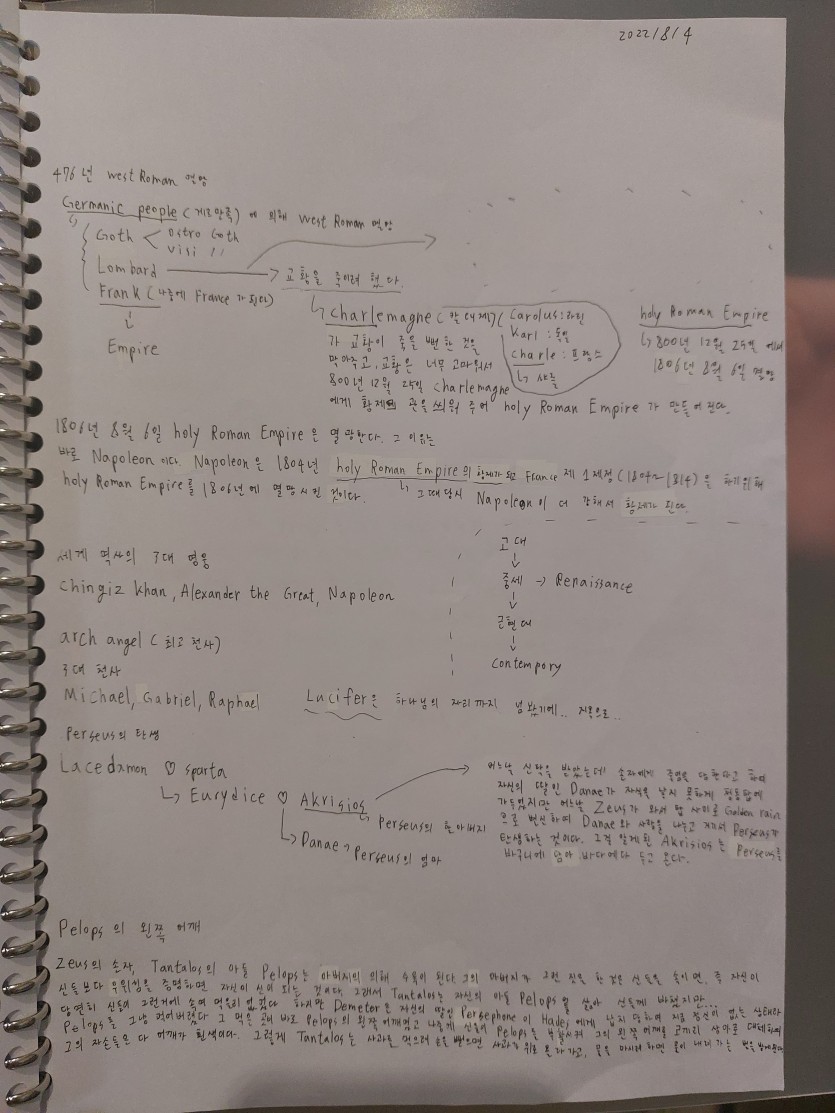 2022/8/4
476년 west Roman 멸망
Germanic people (게르만족) 에 의해 west Roman 멸망
Goth < Ostro Goth
Visi 〃
Lombard → 교황을 죽이려 했다.
Frank (나중에 France가 된다)
↓
Empire
↳ charlemagne (칼 대제) ( Carolus : 라틴
Karl : 독일
charle : 프랑스
↳ 샤를
가 교황이 죽을 뻔 한 것을
막아주고, 교황은 너무 고마워서
800년 12월 25일 charlemagne
에게 황제의 관을 씌워 주어 holy Roman Empire 가 만들어 진다.
holy Roman Empire
↳ 800년 12월 25일 에서
1806년 8월 6일 멸망
1806년 8월 6일 holy Roman Empire은 멸망한다. 그 이유는
바로 Napoleon 이다. Napoleon은 1804년 holy Roman Empire의 황제가 되고 France 제 1제정 (1804~1814) 을 하기위해
holy Roman Empire를 1806년에 멸망시킨 것이다. ↳ 그때당시 Napoleon이 더 강해서 황제가 된다.
세계 역사의 3대 영웅
Chingiz khan, Alexander the Great, Napoleon
고대
↓
중세 → Renaissance
↓
근현대
↓
Contempory
arch angel (최고 천사)
3대 천사
Michael, Gabriel, Raphael
Lucifer은 하나님의 자리까지 넘봤기에.. 지옥으로..
Perseus의 탄생
Lacedamon ♡ sparta
↳ Eurydice ♡ Akrisios
↳ Perseus의 할아버지
↳ Danae → Perseus의 엄마
어느날 신탁을 받았는데 손자에게 죽임을 당한다고 하여
자신의 딸인 Danae가 자식을 낳지 못하게 청동탑에
가두었지만 어느날 Zeus가 와서 탑 사이로 Golden rain
으로 변신하여 Danae와 사랑을 나누고 거기서 Perseus가
탄생하는 것이다. 그걸 알게된 Akrisios는 Perseus를
바구니에 담아 바다에다 두고 온다.
Pelops 의 왼쪽 어깨
Zeus의 손자, Tantalos의 아들 Pelops는 아버지의 의해 수육이 된다. 그의 아버지가 그런 짓을 한 것은 신들을 속이면, 즉 자신이
신들보다 우위임을 증명하면 자신이 신이 되는 것이다. 그래서 Tantalos는 자신의 아들 Pelops를 삶아 신들께 바쳤지만...
당연히 신들이 그런거에 속여 먹을리 없었다 하지만 Demeter은 자신의 딸인 Persephone이 Hades에게 납치 당하여 지금 정신이 없는 상태라
Pelops를 그냥 먹어버렸다. 그 먹은 곳이 바로 Pelops의 왼쪽 어깨였고 나중에 신들이 Pelops를 부활시켜 그의 왼쪽 어깨를 코끼리 상아로 대체하여
그의 자손들은 다 어깨가 흰색이다. 그렇게 Tantalos는 사과를 먹으려 손을 뻗으면 사과가 위로 올라가고, 물을 마시려 하면 물이 내려가는 벌을 받게된다